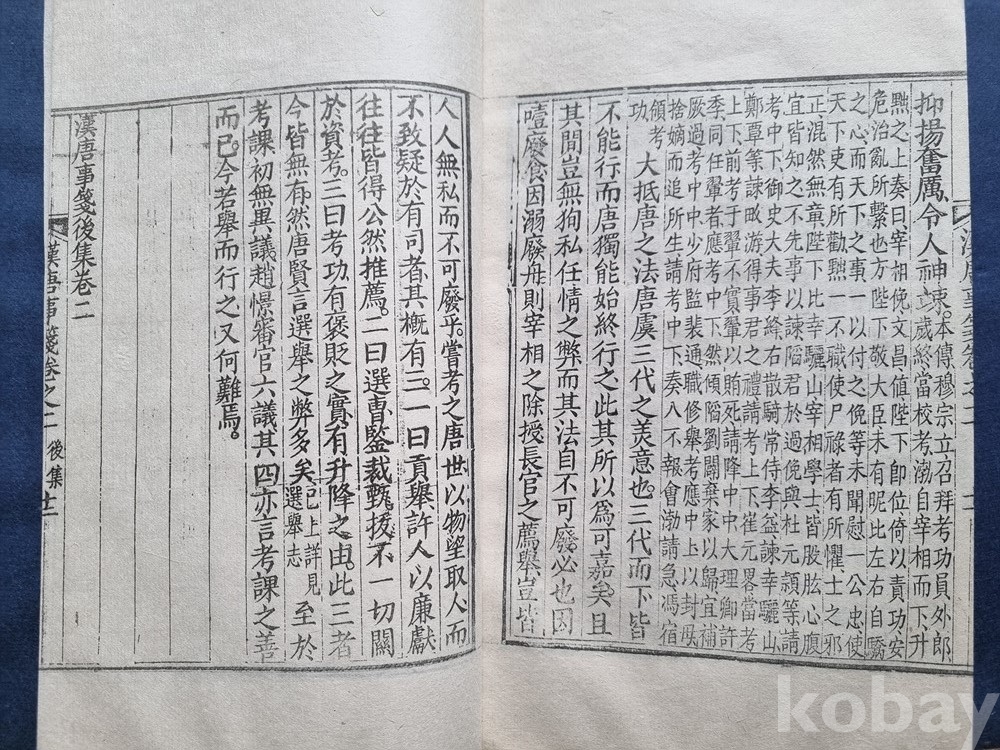 抑揚奮厲令人神竦本傳穆宗立召拜考功員外郎
歲終當校考渤自宰相而下升
黜之上奏曰宰相俛文昌値陛下即位倚以責功安
危治亂所繫也方陛下敬大臣未有昵比左右自驕
之心而天下之事一以付之俛等未聞慰一公忠使
天下吏有所勸黜一不職使尸祿者有所懼士之邪
正混然無章陛下比幸驪山宰相學士皆股肱心腹
宜皆知之不先事以諫陷君於過俛與杜元頴等請
考中下御史大夫李絳右散騎常侍李益諫幸驪山
鄭覃等諫畋游得事君之禮請考上下崔元畧當考
上下前考于翬不實翬以賄死請降中中大理卿許
季同任翬者應考中下然傾陷劉闢棄家以歸宜補
厥過考中中少府監裴通職修舉考應中上以封母
捨嫡而追所生請考中下奏入不報會渤請急馮宿
領考
功 大抵唐之法唐虞三代之美意也三代而下皆
不能行而唐獨能始終行之此其所以爲可嘉矣且
其閒豈無狥私任情之弊而其法自不可廢必也因
噎廢食因溺廢舟則宰相之除授長官之薦舉豈皆
漢唐事箋卷之二
人人無私而不可廢乎嘗考之唐世以物望取人而
不致疑於有司者其槪有三一曰貢舉許人以廉獻
往往皆得公然推薦二曰選曹鑒裁甄拔不一切關
於資考三曰考功有褒貶之實有升降之由此三者
今皆無有然唐賢言選舉之弊多矣已上詳見選舉志至於
考課初無異議趙憬審官六議其四亦言考課之善
而已今若舉而行之又何難焉
漢唐事箋後集卷二
漢唐事箋卷之二 後集 十二
kobay